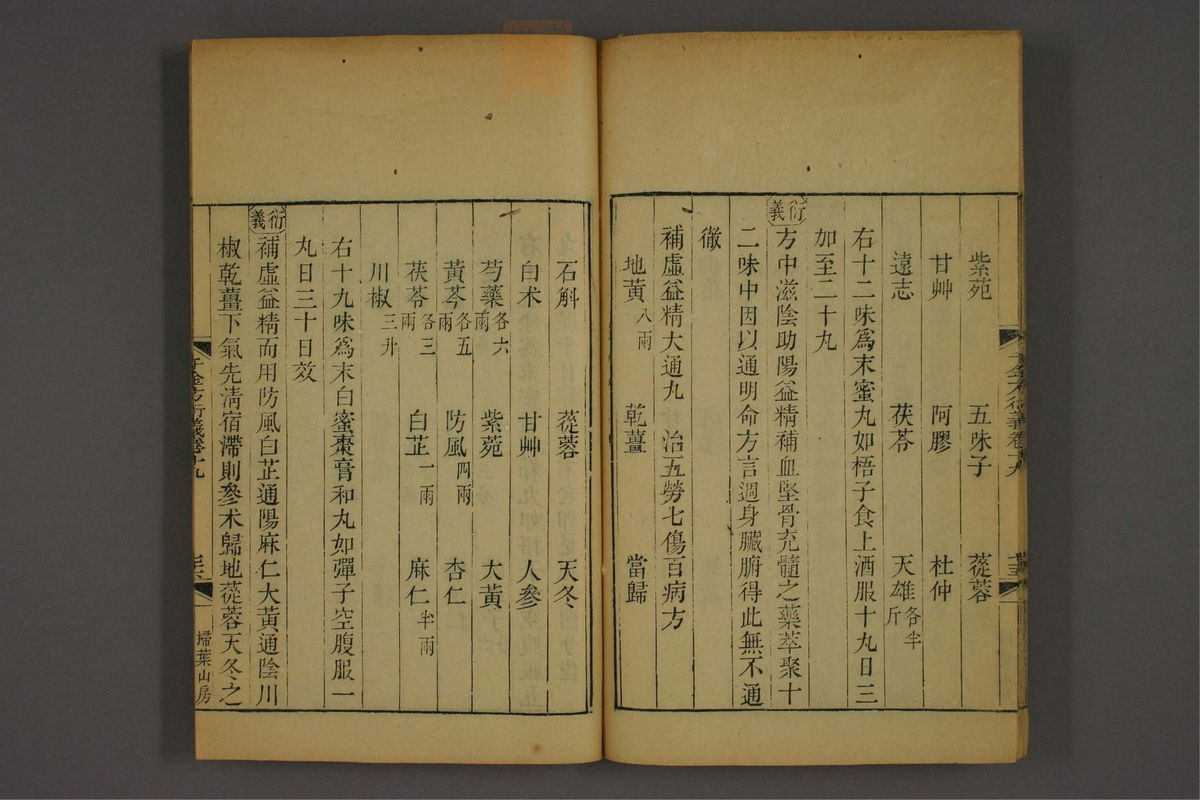 紫苑 五味子 蓯蓉
甘艸 阿膠 杜仲
遠志 茯苓 天雄各半斤
右十二味爲末蜜丸如梧子食上酒服十丸日三
加至二十丸
衍義 方中滋陰助陽益精補血堅骨充髓之藥萃聚十
二味中因以通明命方言週身臟腑得此無不通
徹
補虛益精大通丸 治五勞七傷百病方
地黃八兩 乾薑 當歸
石斛 蓯蓉 天冬
白术 甘艸 人參
芍藥各六兩 紫菀 大黃
黃芩各五兩 防風四兩 杏仁
茯苓各三兩 白芷一兩 麻仁半兩
川椒三升
右十九味爲末白蜜棗膏和丸如彈子空腹服一
丸日三十日效
衍義 補虛益精而用防風白芷通陽麻仁大黃通陰川
椒乾薑下氣先淸宿滯則參术歸地蓯蓉天冬之
千金方衍義卷十九
掃葉山房